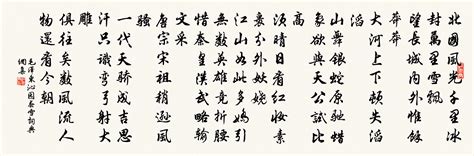 北國風光千里冰
封萬里雪飄
望長城內外惟餘
莽莽
大河上下頓失
滔滔
山舞銀蛇原馳蠟
象欲與天公試比
高
須晴日看紅裝素
裹分外妖嬈
江山如此多嬌引
無數英雄競折腰
惜秦皇漢武略輸
文采
唐宗宋祖稍遜風
騷
一代天驕成吉思
汗只識彎弓射大
雕
俱往矣數風流人
物還看今朝
毛澤東沁園春雪詞